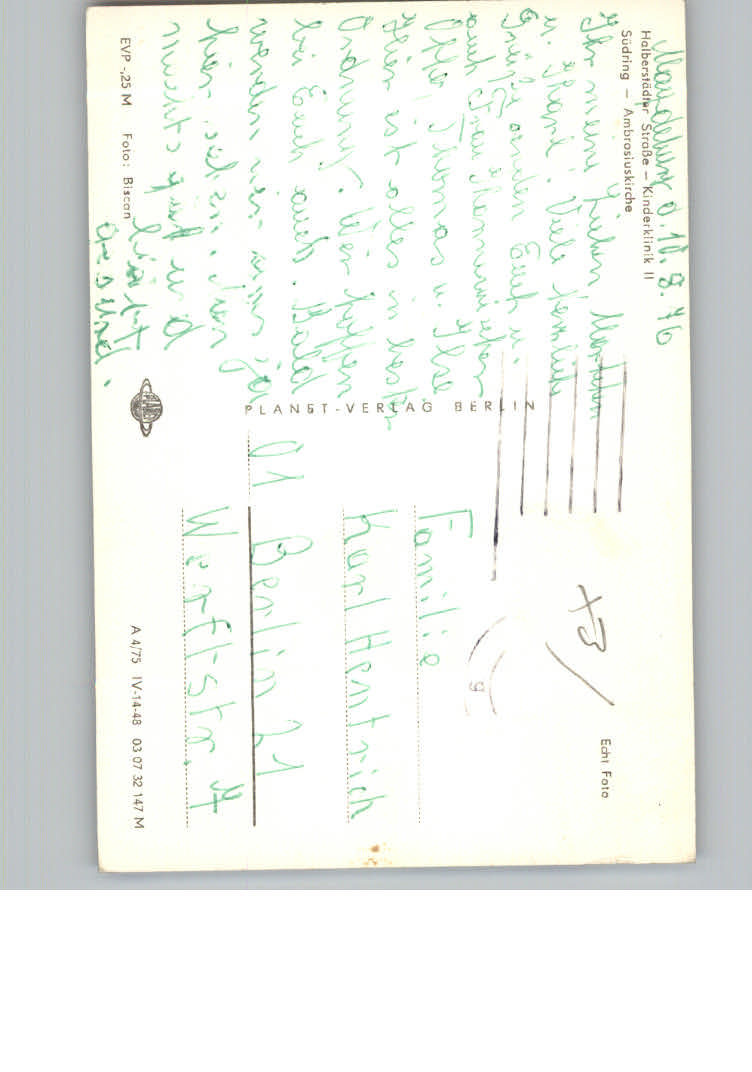 Halberstädter Straße – Kinderklinik II
Südring – Ambrosiuskirche
Magdeburg d. 10. 8. 76
Ihr meine Lieben
u. Karl! Viele herzliche
Grüße senden Euch u.
auch Frau
Otto, Thomas u. Ilse
Hier ist alles in bester
Ordnung. Wir hoffen
bei Euch auch. Bald
werden wir uns ja
hier sehen.
macht's gut und
bleibt
gesund.
EVP -,25 M Foto: Biscan
PLANET-VERLAG BERLIN
Echt Foto
Familie
Karl Hentrich
Berlin 21
Werftstr.
A 4/75 IV-14-48 03 07 32 147 M